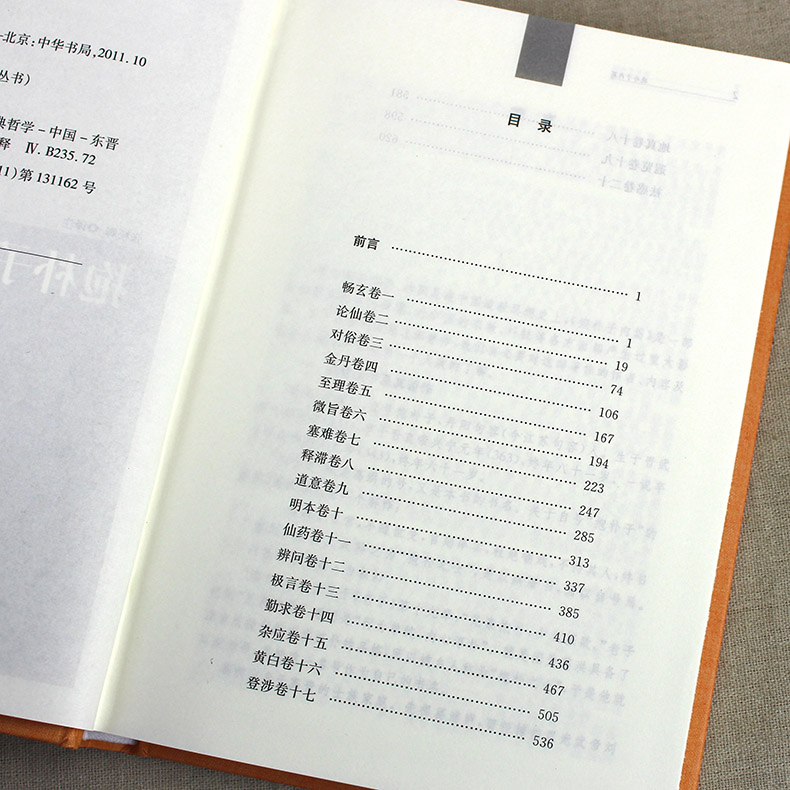 -北京:中华书局,2011.10
丛书)
典哲学-中国-东晋
释 Ⅳ.B235.72
1)第131162号
目录
前言 …… 1
畅玄卷一 …… 1
论仙卷二 …… 19
对俗卷三 …… 74
金丹卷四 …… 106
至理卷五 …… 167
微旨卷六 …… 194
塞难卷七 …… 223
释滞卷八 …… 247
道意卷九 …… 285
明本卷十 …… 313
仙药卷十一 …… 337
辨问卷十二 …… 385
极言卷十三 …… 410
勤求卷十四 …… 436
杂应卷十五 …… 467
黄白卷十六 …… 505
登涉卷十七 …… 536